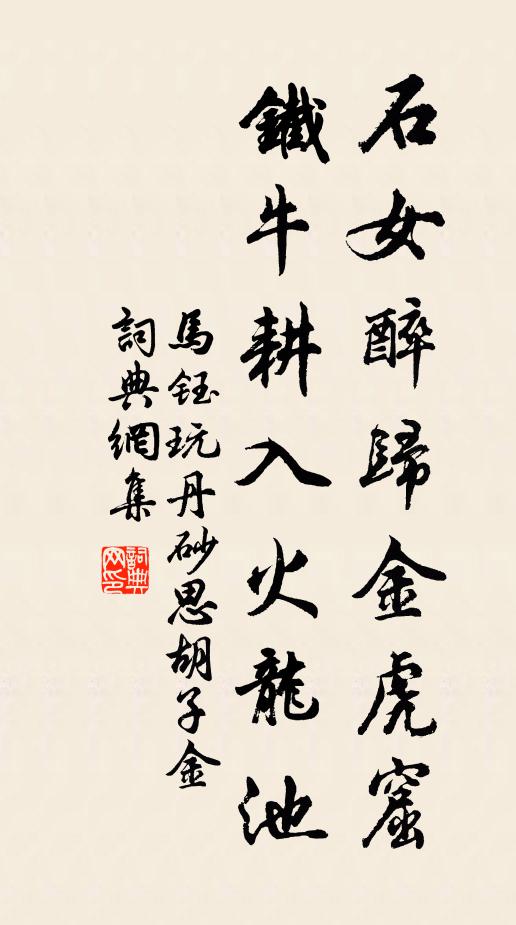 石女醉歸金虎窟
鐵牛耕入火龍池
馬鈺玩丹砂思胡子金
詞典網集
詞典網印